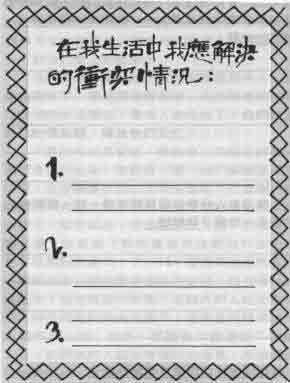 在我生活中我應解決
的衝突情況：
1.
2.
3.